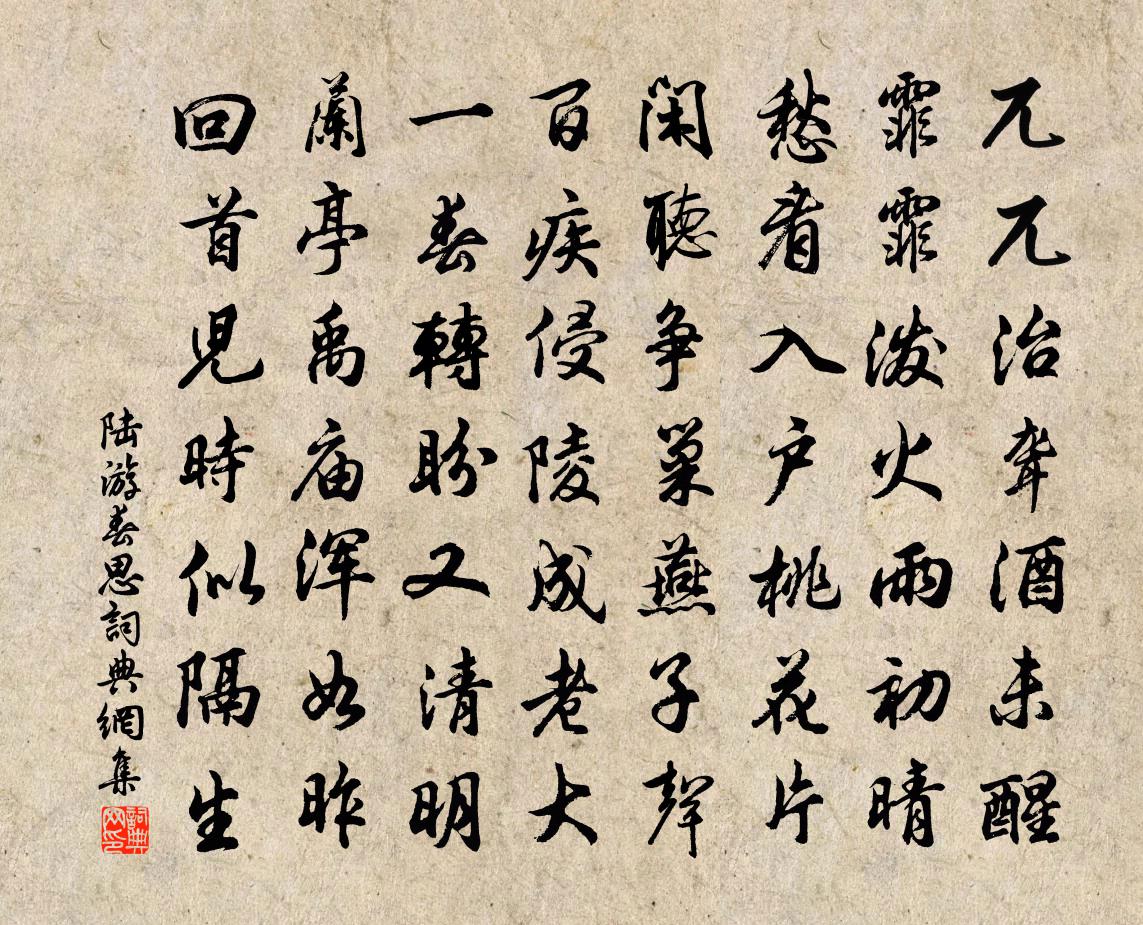 兀兀治聋酒未醒
霏霏泼火雨初晴
愁看入户桃花片
閑聽争巢燕子聲
百疾侵陵成老大
一春轉盼又清明
蘭亭禹庙浑如昨
回首児時似隔生
陆游春思詞典網集
詞典网印